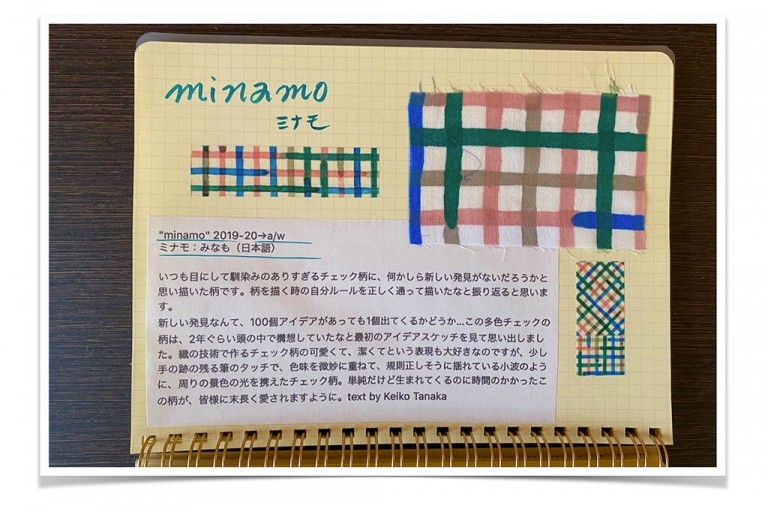 minamo
ミナモ
"minamo" 2019-20→a/w
ミナモ：みなも（日本語）
いつも目にして馴染みのありすぎるチェック柄に、何かしら新しい発見がないだろうかと
思い描いた柄です。柄を描く時の自分ルールを正しく通って描いたなと振り返ると思いま
す。
新しい発見なんて、100個アイデアがあっても1個出てくるかどうか...この多色チェックの
柄は、2年ぐらい頭の中で構想していたなと最初のアイデアスケッチを見て思い出しまし
た。織の技術で作るチェック柄の可愛くて、潔くてという表現も大好きなのですが、少し
手の跡の残る筆のタッチで、色味を微妙に重ねて、規則正しそうに揺れている小波のよう
に、周りの景色の光を携えたチェック柄。単純だけど生まれてくるのに時間のかかったこ
の柄が、皆様に末長く愛されますように。text by Keiko Tanaka